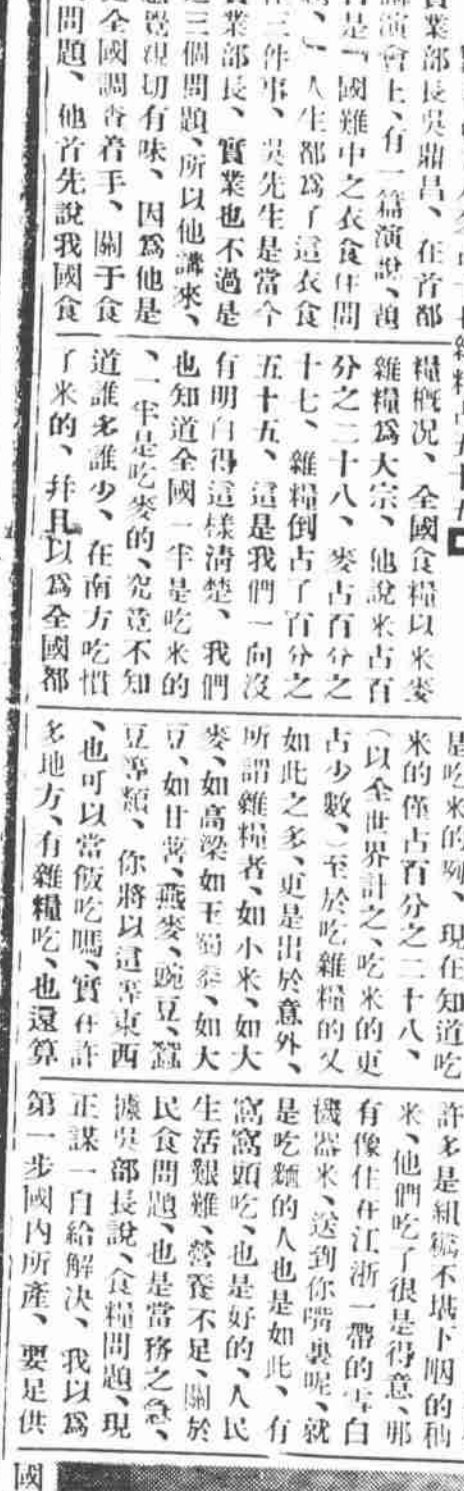 實業部長吳鼎昌、在首都
演會上、有一篇演說、題
是「國難中之衣食住問
」人生都爲了這衣食
三件事、吳先生是當今
業部長、實業也不過是
三個問題、所以他講來、
覺親切有味、因爲他是
全國調查着手、關于食
問題、他首先說我國食
雜糧占五十五
糧槪况、全國食糧以米麥
雜糧爲大宗、他說米占百
分之二十八、麥占百分之
十七、雜糧倒占了百分之
五十五、這是我們一向沒
有明白得這樣淸楚、我們
也知道全國一半是吃米的
、一半是吃麥的、究竟不知
道誰多誰少、在南方吃慣
了米的、幷且以爲全國都
是吃米的咧、現在知道吃
米的僅占百分之二十八、
（以全世界計之、吃米的更
占少數、）至於吃雜糧的又
如此之多、更是出於意外、
所謂雜糧者、如小米、如大
麥、如高梁如玉蜀黍、如大
豆、如甘薯、燕麥、豌豆、蠶
豆等類、你將以這等東西
、也可以當飯吃嗎、實在許
多地方、有雜糧吃、也還算
許多是粗糲不堪下咽的秈
米、他們吃了很是得意、那
有像住在江浙一帶的雪白
機器米、送到你嘴裏呢、就
是吃麵的人也是如此、有
窩窩頭吃、也是好的、人民
生活艱難、營養不足、關於
民食問題、也是當務之急、
據吳部長說、食糧問題、現
正謀一自給解决、我以爲
第一步國內所產、要足供
國